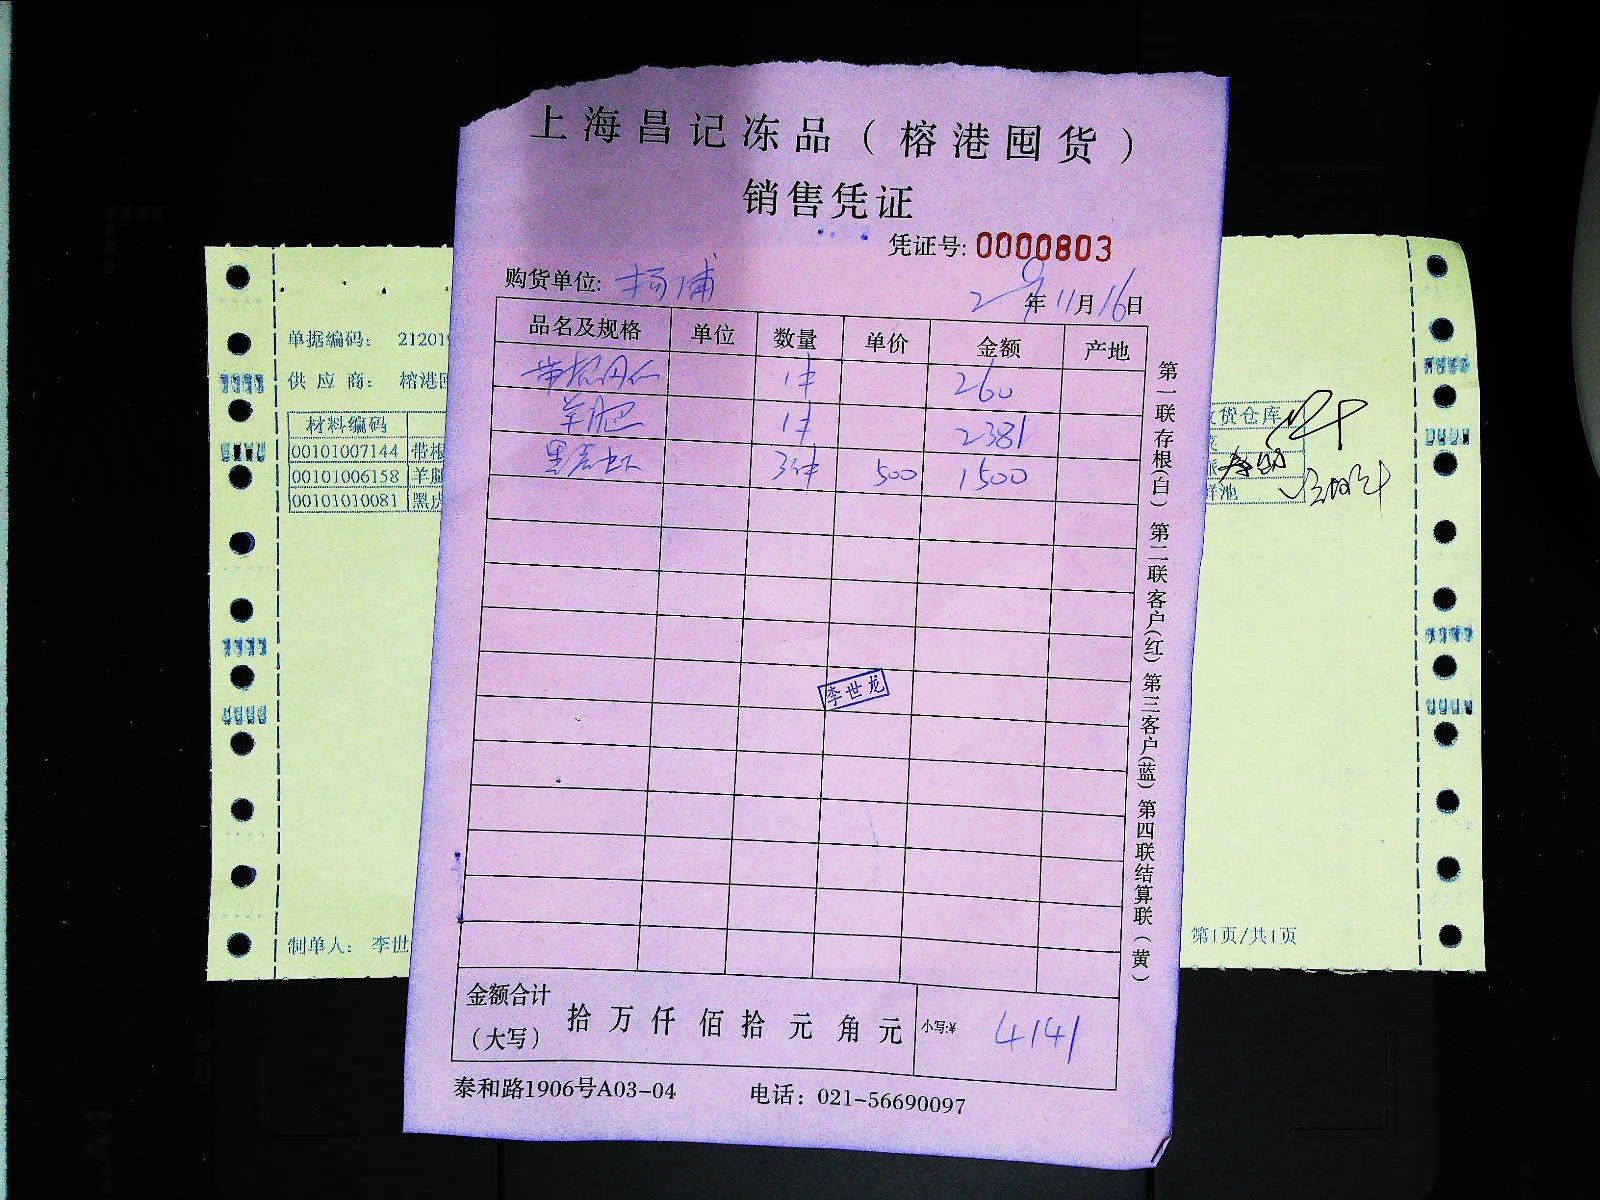 上海昌记冻品（榕港囤货）
销售凭证
凭证号: 0000803
购货单位: 杨浦
29年11月16日
品名及规格 单位 数量 单价 金额 产地
带根开仁 1件 260
羊腿 1件 2381
黑虎虾 3件 500 1500
李世龙
金额合计（大写） 拾 万 仟 佰 拾 元 角 元 小写:¥ 4141
泰和路1906号A03-04 电话：021-56690097
第一联存根（白） 第二联客户（红） 第三客户（蓝） 第四联结算联（黄）
单据编码： 212019
供应商： 榕港
材料编码
00101007144 带根
00101006158 羊腿
00101010081 黑虎
货仓库
制单人： 李世
第1页/共1页